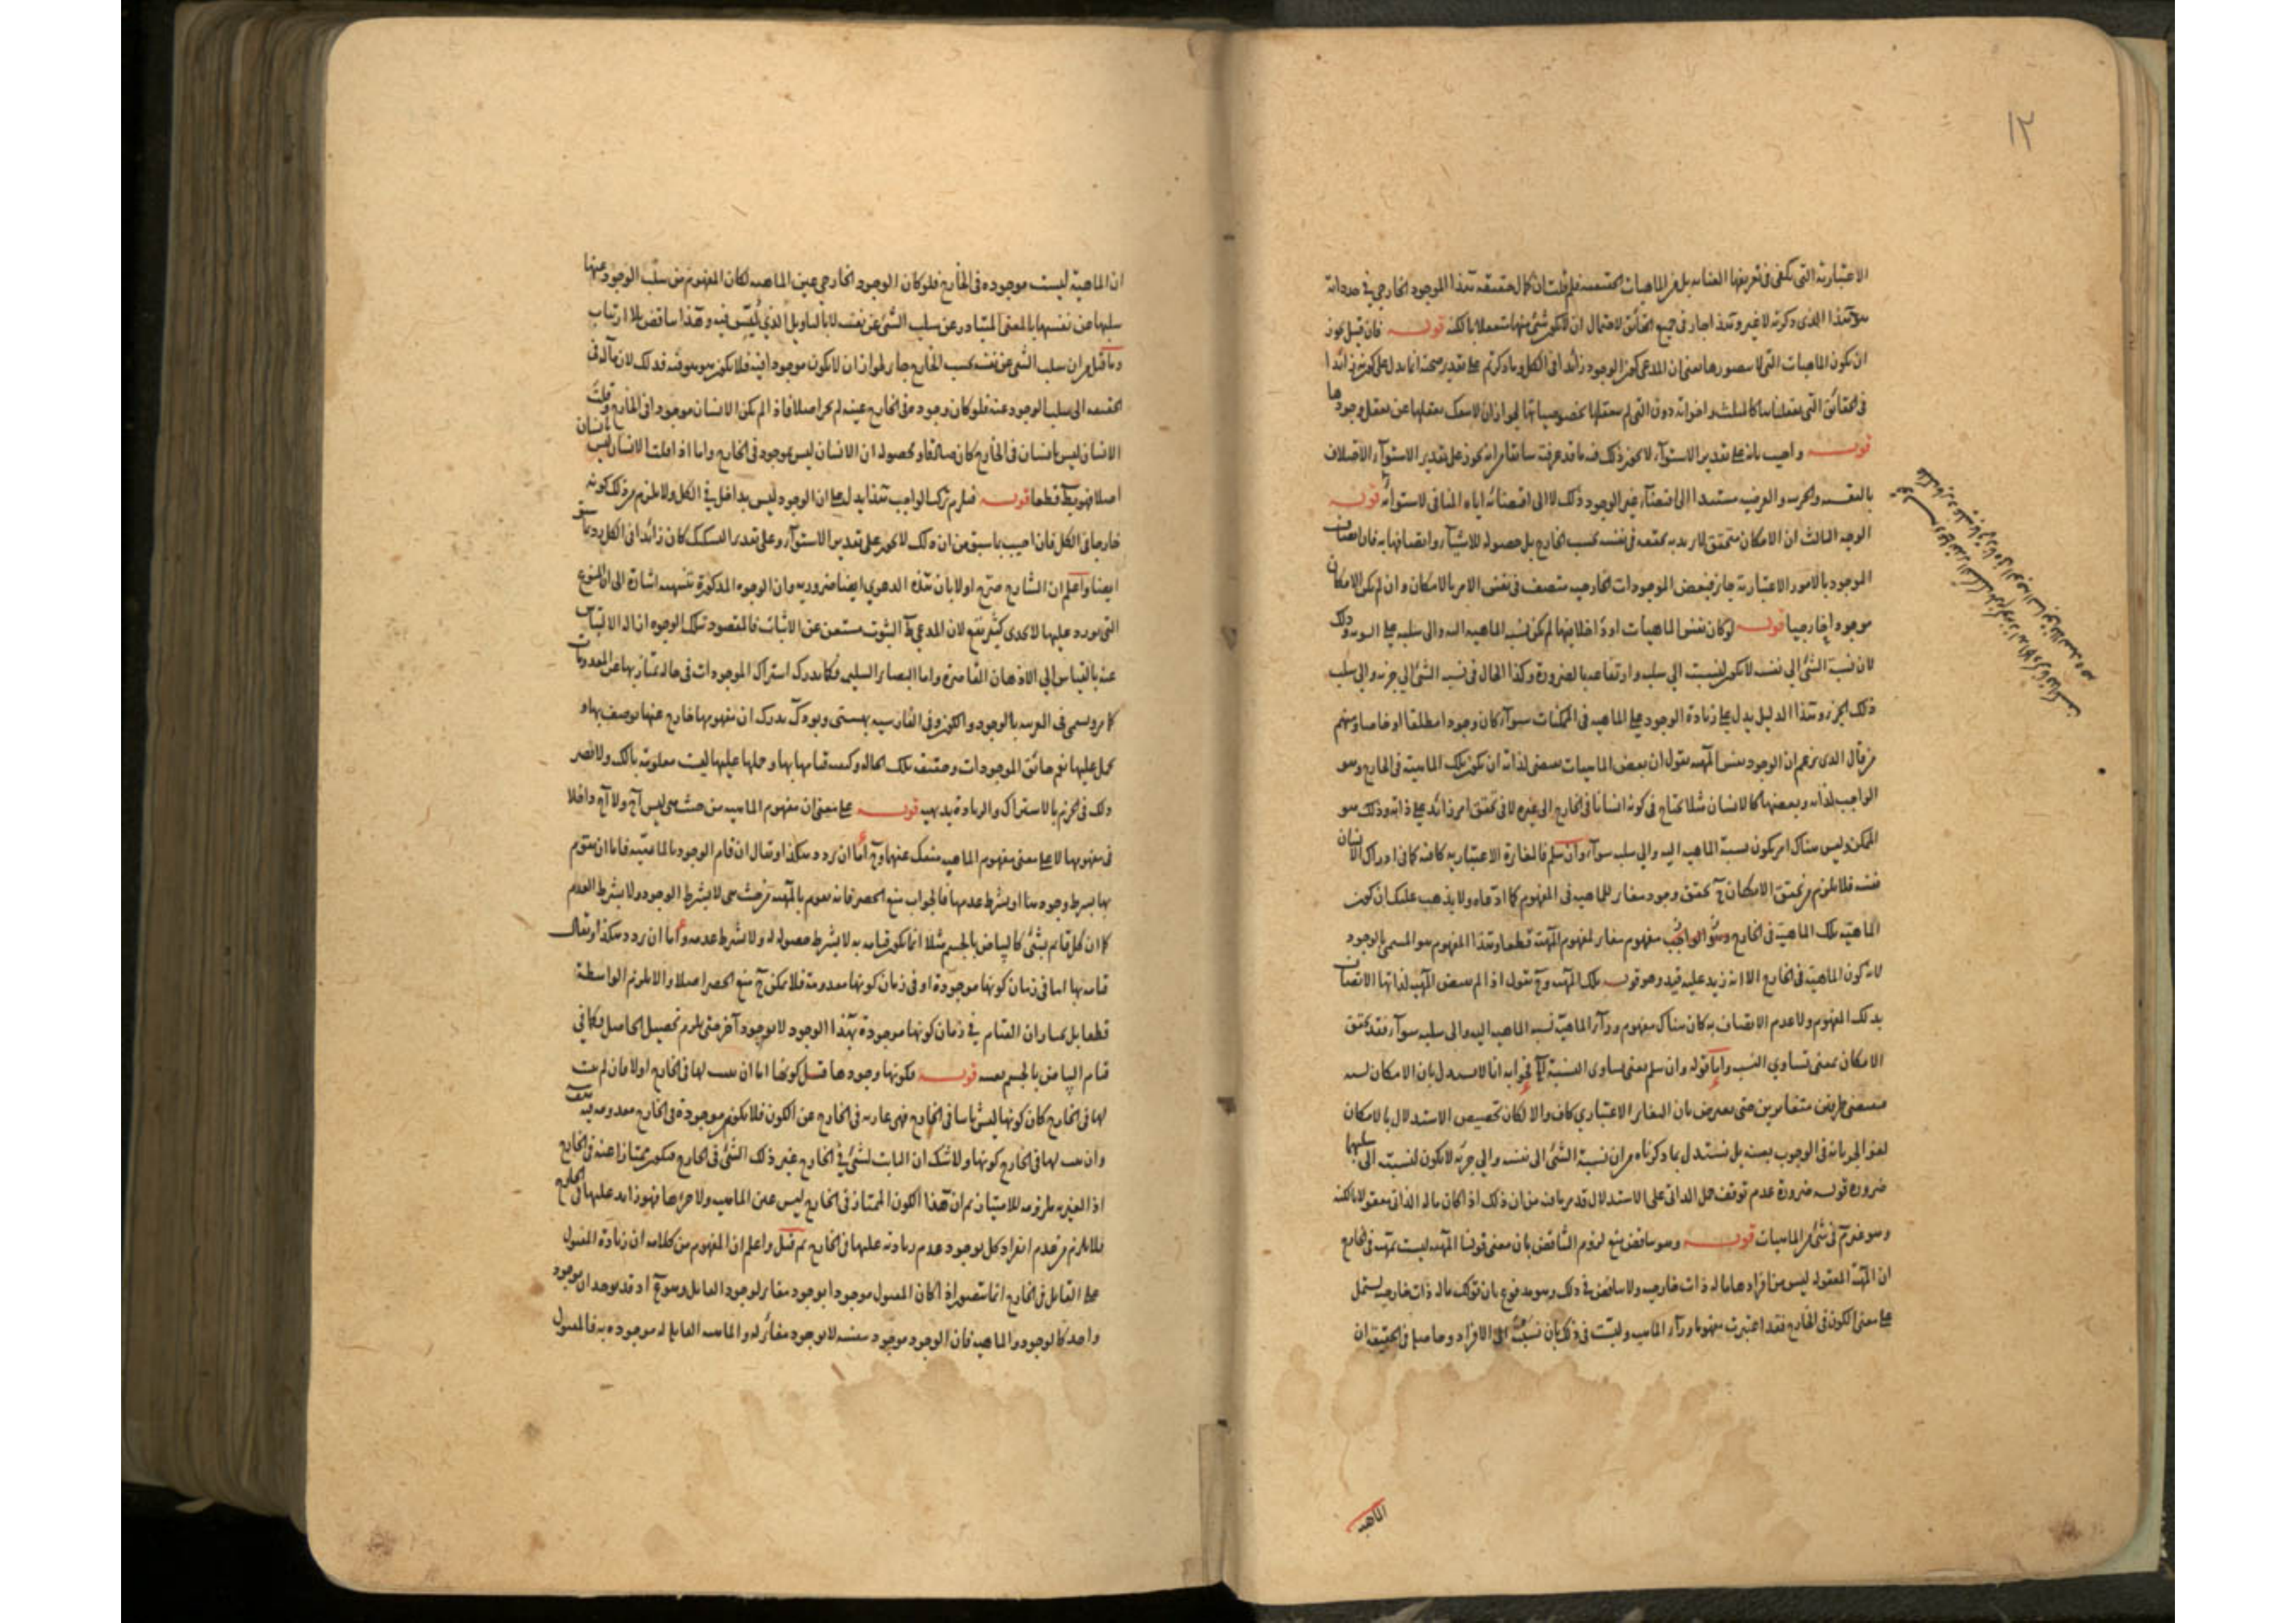 ١٢
الاعتبارية التي يكفي في تعريفها بل من الماهيات الحقيقية فلم قلت ان كمال حقيقته هذا الموجود الخارجي في حد ذاته
هو هذا الذي ذكرته لا غير وهذا جار في جميع الحقائق لاحتمال ان لا يكون شئ منها متعقلا بالكنه قوله فان قيل يجوز
ان يكون الماهيات التي لا نتصورها يعني ان المدعى كون الوجود زائدا في الكل وما ذكرتم على تقدير صحته انما يدل على كونه زائدا
في الحقائق التي تعقلناها كالمثلث واخواته دون التي لم نتعقلها بخصوصياتها لجواز ان لا ينفك تعقلها عن تعقل وجودها
قوله واجيب بانه على تقدير الاستواء لا يجوز ذلك فيه ما قد عرفت سابقا من انه يجوز على تقدير الاستواء الاختلاف
مستندا الى اقتضاء غير الوجود ذلك لا الى اقتضائه اياه المنافي لاستوائه قوله
الوجه الثالث ان الامكان متحقق لا نريد به تحققه في نفسه بحسب الخارج بل حصوله للاشياء واتصافها به فان اتصاف
الموجود بالامور الاعتبارية جائز فبعض الموجودات الخارجية متصف في نفس الامر بالامكان وان لم يكن الامكان
موجودا خارجيا قوله لو كان نفس الماهيات او داخلا فيها لم يكن نسبة الماهية اليه والى سلبه على السوية وذلك
لان نسبة الشئ الى نفسه لا تكون كنسبته الى سلبه وارتفاعه بالضرورة وكذا الحال في نسبة الشئ الى جزئه والى سلب
ذلك الجزء وهذا الدليل يدل على زيادة الوجود على الماهية في الممكنات سواء كان وجودا مطلقا او خاصا ومنهم
من قال الذي يزعم ان الوجود نفس المهية يقول ان بعض الماهيات يقتضي لذاته ان يكون تلك الماهية في الخارج وهو
الواجب لذاته وبعضها كالانسان مثلا يحتاج في كونه انسانا في الخارج الى غيره لا في تحقق امر زائد على ذاته وذلك هو
الممكن وليس هناك امر يكون نسبة الماهية اليه والى سلبه سواء وان سلم فالمغايرة الاعتبارية كافية كما في ادراك الانسان
نفسه فلا يلزم من تحقق الامكان ح تحقق وجود مغاير للماهية في المفهوم كما ادعاه ولا يذهب عليك ان كون
الماهية تلك الماهية في الخارج مفهوم مغاير لمفهوم المهية قطعا وهذا المفهوم هو المسمى بالوجود
لانه كون الماهية في الخارج الا انه زيد عليه قيد وهو قوله تلك المهية وح نقول اذا لم يقتض المهية لذاتها الاتصاف
بذلك المفهوم ولا عدم الاتصاف به كان هناك مفهوم وراء الماهية نسبة الماهية اليه والى سلبه سواء فقد تحقق
الامكان بمعنى تساوي النسبة واما قوله وان سلم يعني تساوي النسبة الخ فجوابه انا لا نستدل بان الامكان نسبة
يقتضي طرفين متغايرين حتى يعترض بان التغاير الاعتباري كاف والا لكان تخصيص الاستدلال بالامكان
لغوا لجريانه في الوجوب بعينه بل نستدل بما ذكرناه من ان نسبة الشئ الى نفسه والى جزئه لا يكون كنسبته الى سلبها
ضرورة قوله ضرورة عدم توقف حمل الذاتي على الاستدلال قد مر ما فيه من ان ذلك اذا كان ما له الذاتي معقولا بالكنه
وهو غير تم في شئ من الماهيات قوله وهو تناقض يمنع لزوم التناقض بان معنى قولنا المهية ليست بمهية في الخارج
ان المهية المعقولة ليس من افرادها ما له ذات خارجية ولا تناقض في ذلك وهو مدفوع بان قولك ما له ذات خارجية يشتمل
على معنى الكون في الخارج فقد اعتبرت مفهوما وراء الماهية وليست في ذلك بأن نسبت الى الافراد وحاصله في الحقيقة ان
الماهية
ان الماهية ليست موجودة في الخارج فلو كان الوجود الخارجي عين الماهية لكان المفهوم من سلب الوجود عنها
سلبها عن نفسها بالمعنى المتبادر عن سلب الشئ عن نفسه لا بالتأويل الذي ليس فيه وهذا تناقض بلا ارتياب
وما قيل من ان سلب الشئ عن نفسه بحسب الخارج جائز لجواز ان لا يكون موجودا فيه فلا يكون هو هو فيه فذلك لان مآله في
الحقيقة الى سلب الوجود عنه فلو كان وجوده في الخارج عينه لم يجز اصلا فاذا لم يكن الانسان موجودا في الخارج وقلت
الانسان ليس بانسان في الخارج كان صادقا ومحصوله ان الانسان ليس بموجود في الخارج واما اذا قلت الانسان ليس بانسان
اصلا فهو بط قطعا قوله فيلزم تركب الواجب هذا يدل على ان الوجود ليس بداخل في الكل ولا يلزم من ذلك كونه
خارجا في الكل فان اجيب بما سبق من ان ذلك لا يجوز على تقدير الاستواء وعلى تقدير التشكيك كان زائدا في الكل رد بما سبق
ايضا واعلم ان الشارح صرح اولا بان هذه الدعوى ايضا ضرورية وان الوجوه المذكورة تنبيهية اشارة الى ان المنوع
التي تورد عليها لا تجدي كثير نفع لان المدعى ظ الثبوت مستغن عن الاثبات فالمقصود بتلك الوجوه ازالة الالتباس
عنه بالقياس الى الاذهان القاصرة واما البصائر السليمة فكما تدرك اشتراك الموجودات في حالة تمتاز بها عن المعدومات
كما مر ويسمى في العربية بالوجود والكون وفي الفارسية بهستي وبودن تدرك ان مفهومها خارج عنها توصف بها و
تحمل عليها نعم حقائق الموجودات وحقيقة تلك الحالة وكيفية قيامها بها وحملها عليها ليست معلومة بالكنه ولا تضر
ذلك في الجزم بالاشتراك والزيادة بديهية قوله على معنى ان مفهوم الماهية من حيث هي ليس آح ولا آح داخلا
في مفهومها لا على معنى مفهوم الماهية منفك عنهما وح اما ان ردد هكذا او يقال ان قام الوجود بالماهية فاما ان يقوم
بها بشرط وجودها او بشرط عدمها فالجواب منع الحصر فانه يقوم بالمهية من حيث هي لا بشرط الوجود ولا بشرط العدم
كما ان كل قائم بشئ كالبياض بالجسم مثلا انما يكون قيامه به لا بشرط حصوله له ولا بشرط عدمه واما ان ردد هكذا او يقال
قيامه بها اما في زمان كونها موجودة او في زمان كونها معدومة فلا يمكن ح منع الحصر اصلا والا يلزم الواسطة
قطعا بل يختار ان القيام في زمان كونها موجودة بهذا الوجود لا بوجود آخر حتى يلزم تحصيل الحاصل وكما في
قيام البياض بالجسم بعينه قوله فكونها وجودها قيل كونها اما ان يثبت لها في الخارج اولا فان لم يثبت
لها في الخارج كان كونها ليس ثابتا في الخارج فهي عارية في الخارج عن الكون فلا يكون موجودة في الخارج معدومة فيه
وان ثبت لها في الخارج كونها ولا شك ان الثابت لشئ في الخارج غير ذلك الشئ في الخارج فيكون ممتازا عنه في الخارج
اذ الغيرية ملزومة للامتياز ثم ان هذا الكون الممتاز في الخارج ليس عين الماهية ولا جزءها فهو زائد عليها في الخارج
فلا يلزم من عدم انفراد كل بوجود عدم زيادته عليها في الخارج ثم قيل واعلم ان المفهوم من كلامه ان زيادة المقبول
على القابل في الخارج انما يتصور اذا كان المقبول موجودا بوجود مغاير لوجود القابل وهو مم اذ قد يوجدان بوجود
واحد كالوجود والماهية فان الوجود موجود بنفسه لا بوجود مغاير له والماهية القابلة له موجودة به فالمقبول